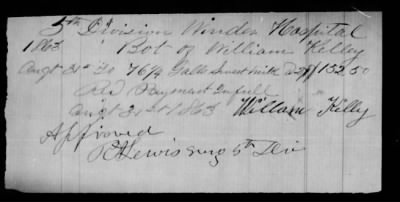 5th Division Winder Hospital
1863 Bot of William Kelley
Augt 31st To 76¼ Galls Sweet milk $152 50
Recd Payment In full
Augt 31st 1863 William Kelly
Approved
Lewis Surg 5th Div